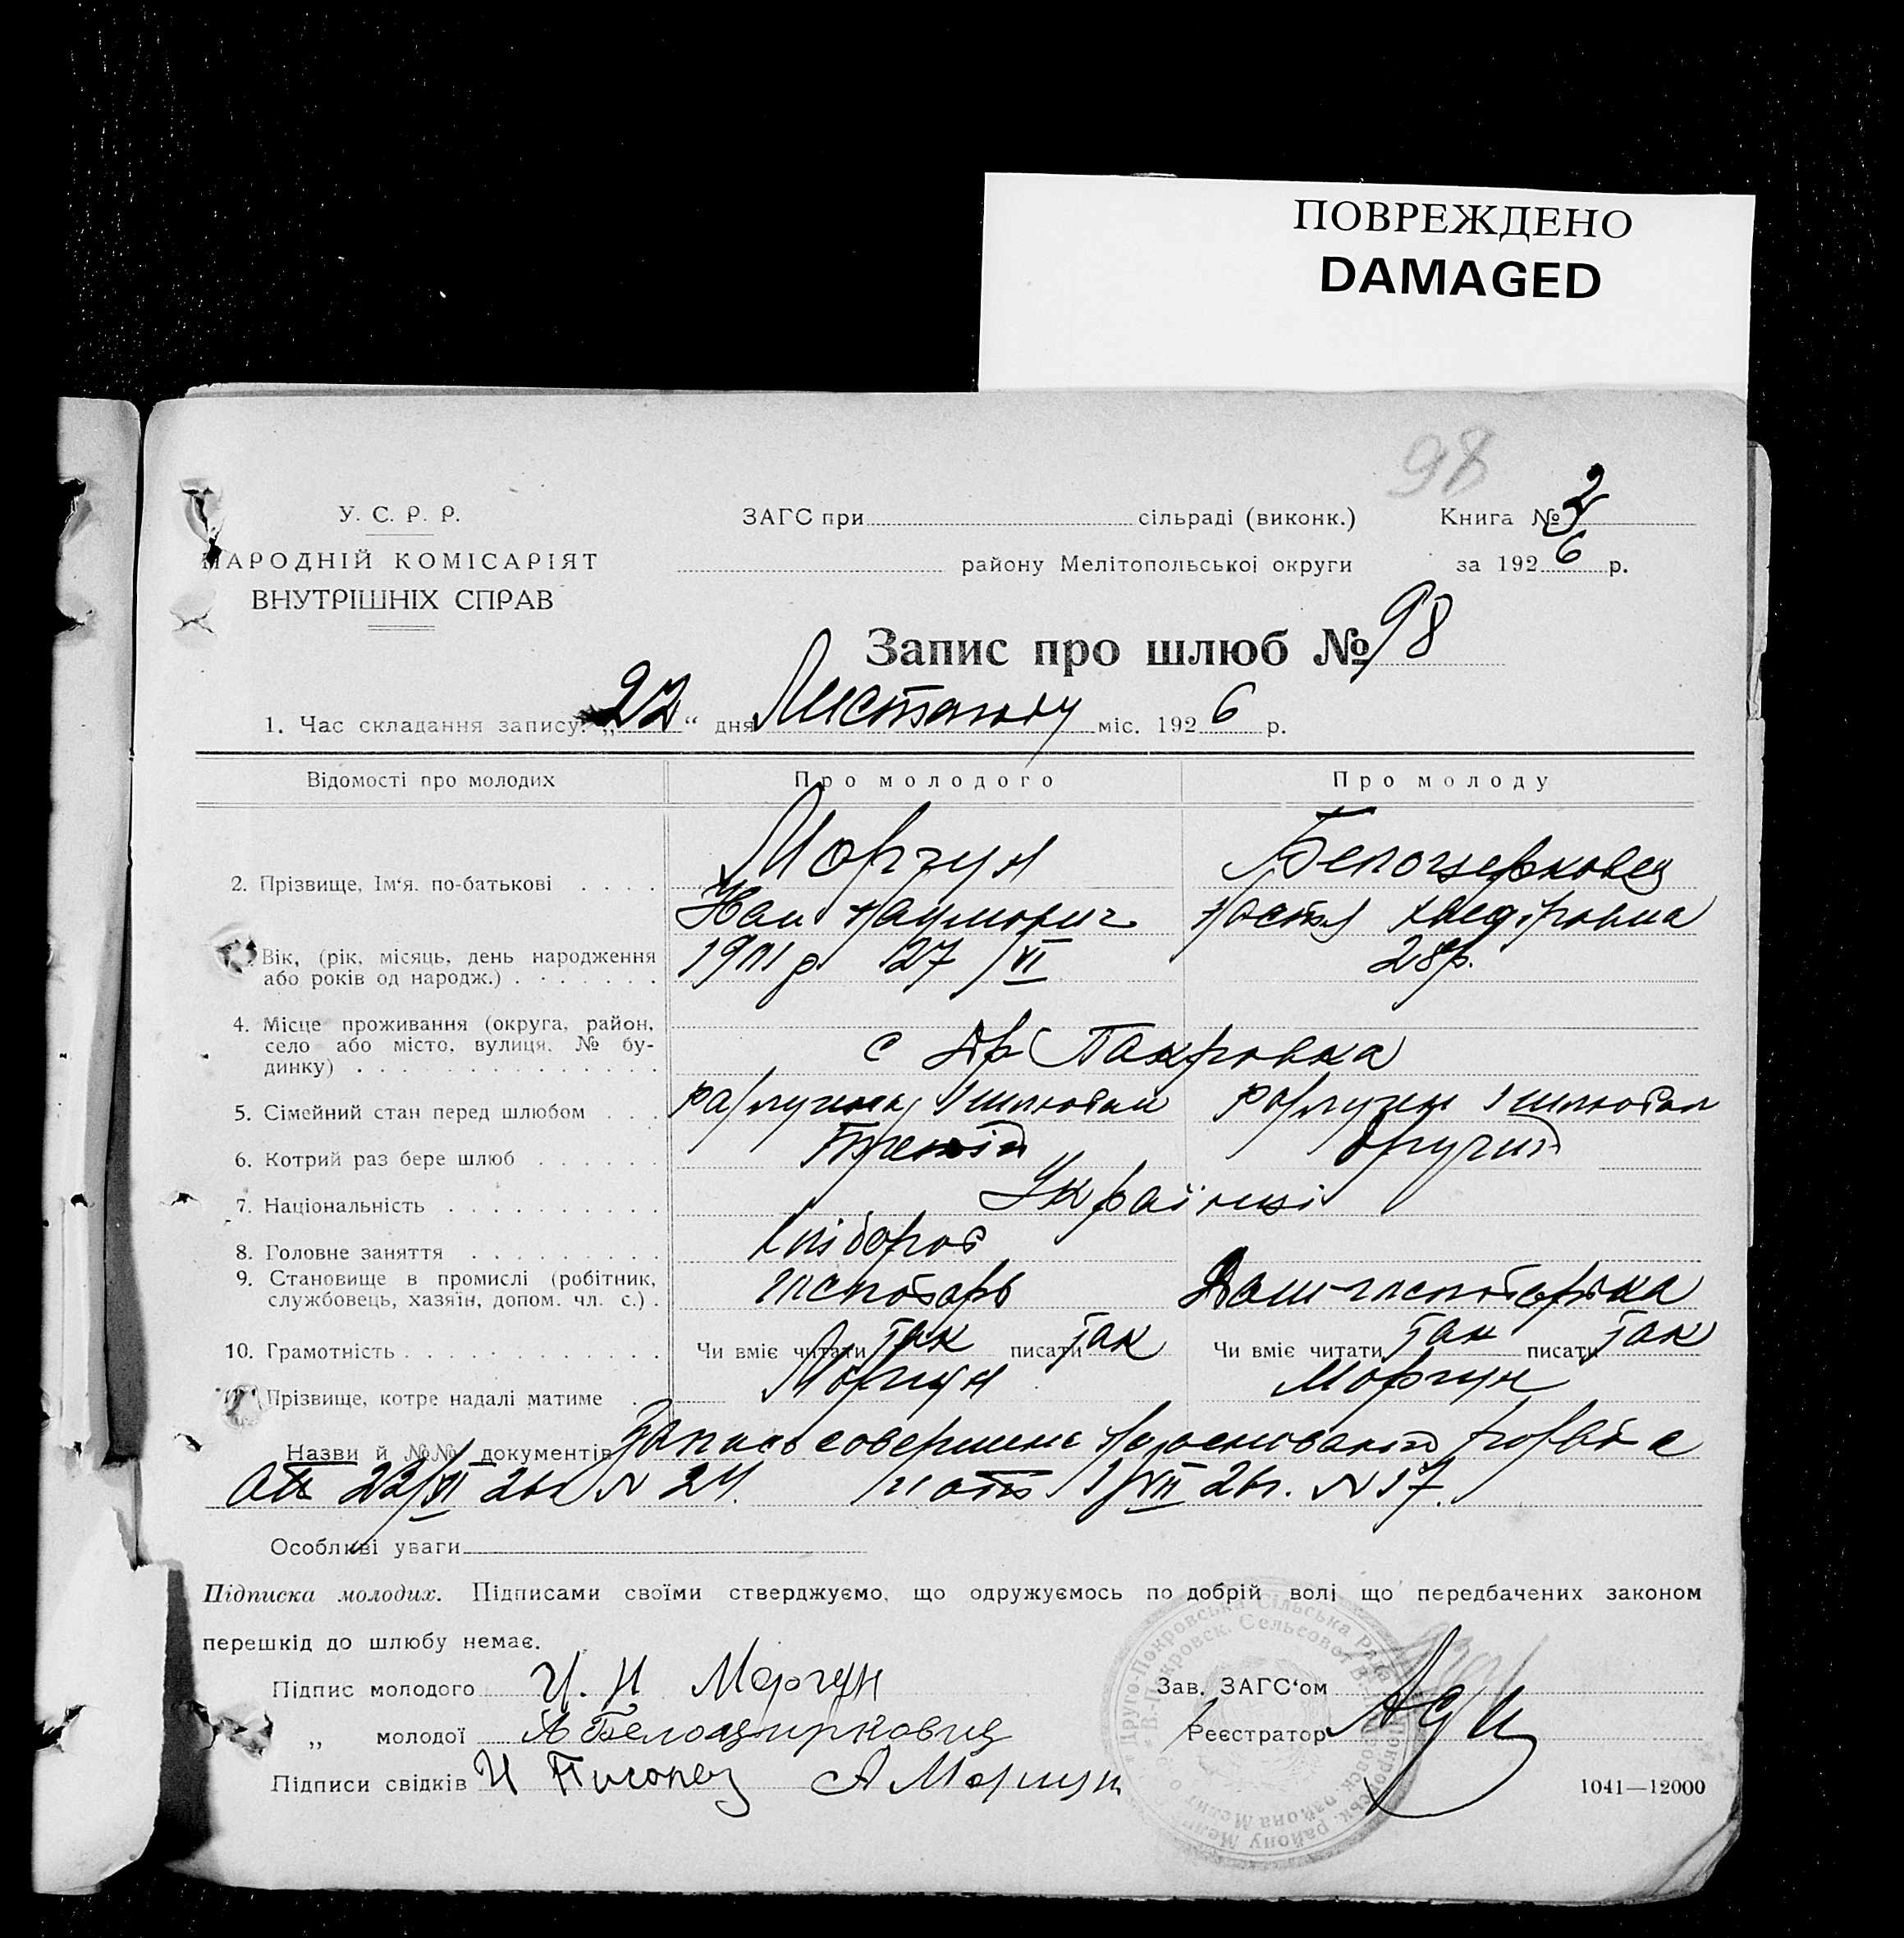 ПОВРЕЖДЕНО
DAMAGED
98
У. С. Р. Р.
НАРОДНІЙ КОМІСАРІЯТ
ВНУТРІШНІХ СПРАВ
ЗАГС при сільраді (виконк.) Книга № 2
району Мелітопольської округи за 1926 р.
Запис про шлюб № 98
1. Час складання запису: „22“ дня Листопаду міс. 1926 р.
Відомості про молодих Про молодого Про молоду
2. Прізвище, Ім‘я. по-батькові Моргун Белоцерковец
Иван Наумович Настя
Вік, (рік, місяць, день народження 1901 р 27 VI 28 р.
або років од народж.)
4. Місце проживання (округа, район,
село або місто, вулиця, № бу-
динку) с Др Покровка
5. Сімейний стан перед шлюбом
6. Котрий раз бере шлюб Третій другий
7. Національність Українці
8. Головне заняття хлібороб
9. Становище в промислі (робітник,
службовець, хазяїн, допом. чл. с.)
10. Грамотність Чи вміє читати так писати так Чи вміє читати так писати так
11. Прізвище, котре надалі матиме Моргун Моргун
Назви й №№ документів Запись совершена на основании развода
от 22/VI 26 г N 24. и от 1/VII 26 г. N 17.
Особливі уваги
Підписка молодих. Підписами своїми стверджуємо, що одружуємось по добрій волі що передбачених законом
перешкід до шлюбу немає.
Підпис молодого И. Н Моргун Зав. ЗАГС‘ом
„ молодої Белоциркавиц Реєстратор
Підписи свідків И А Моргун
1041—12000